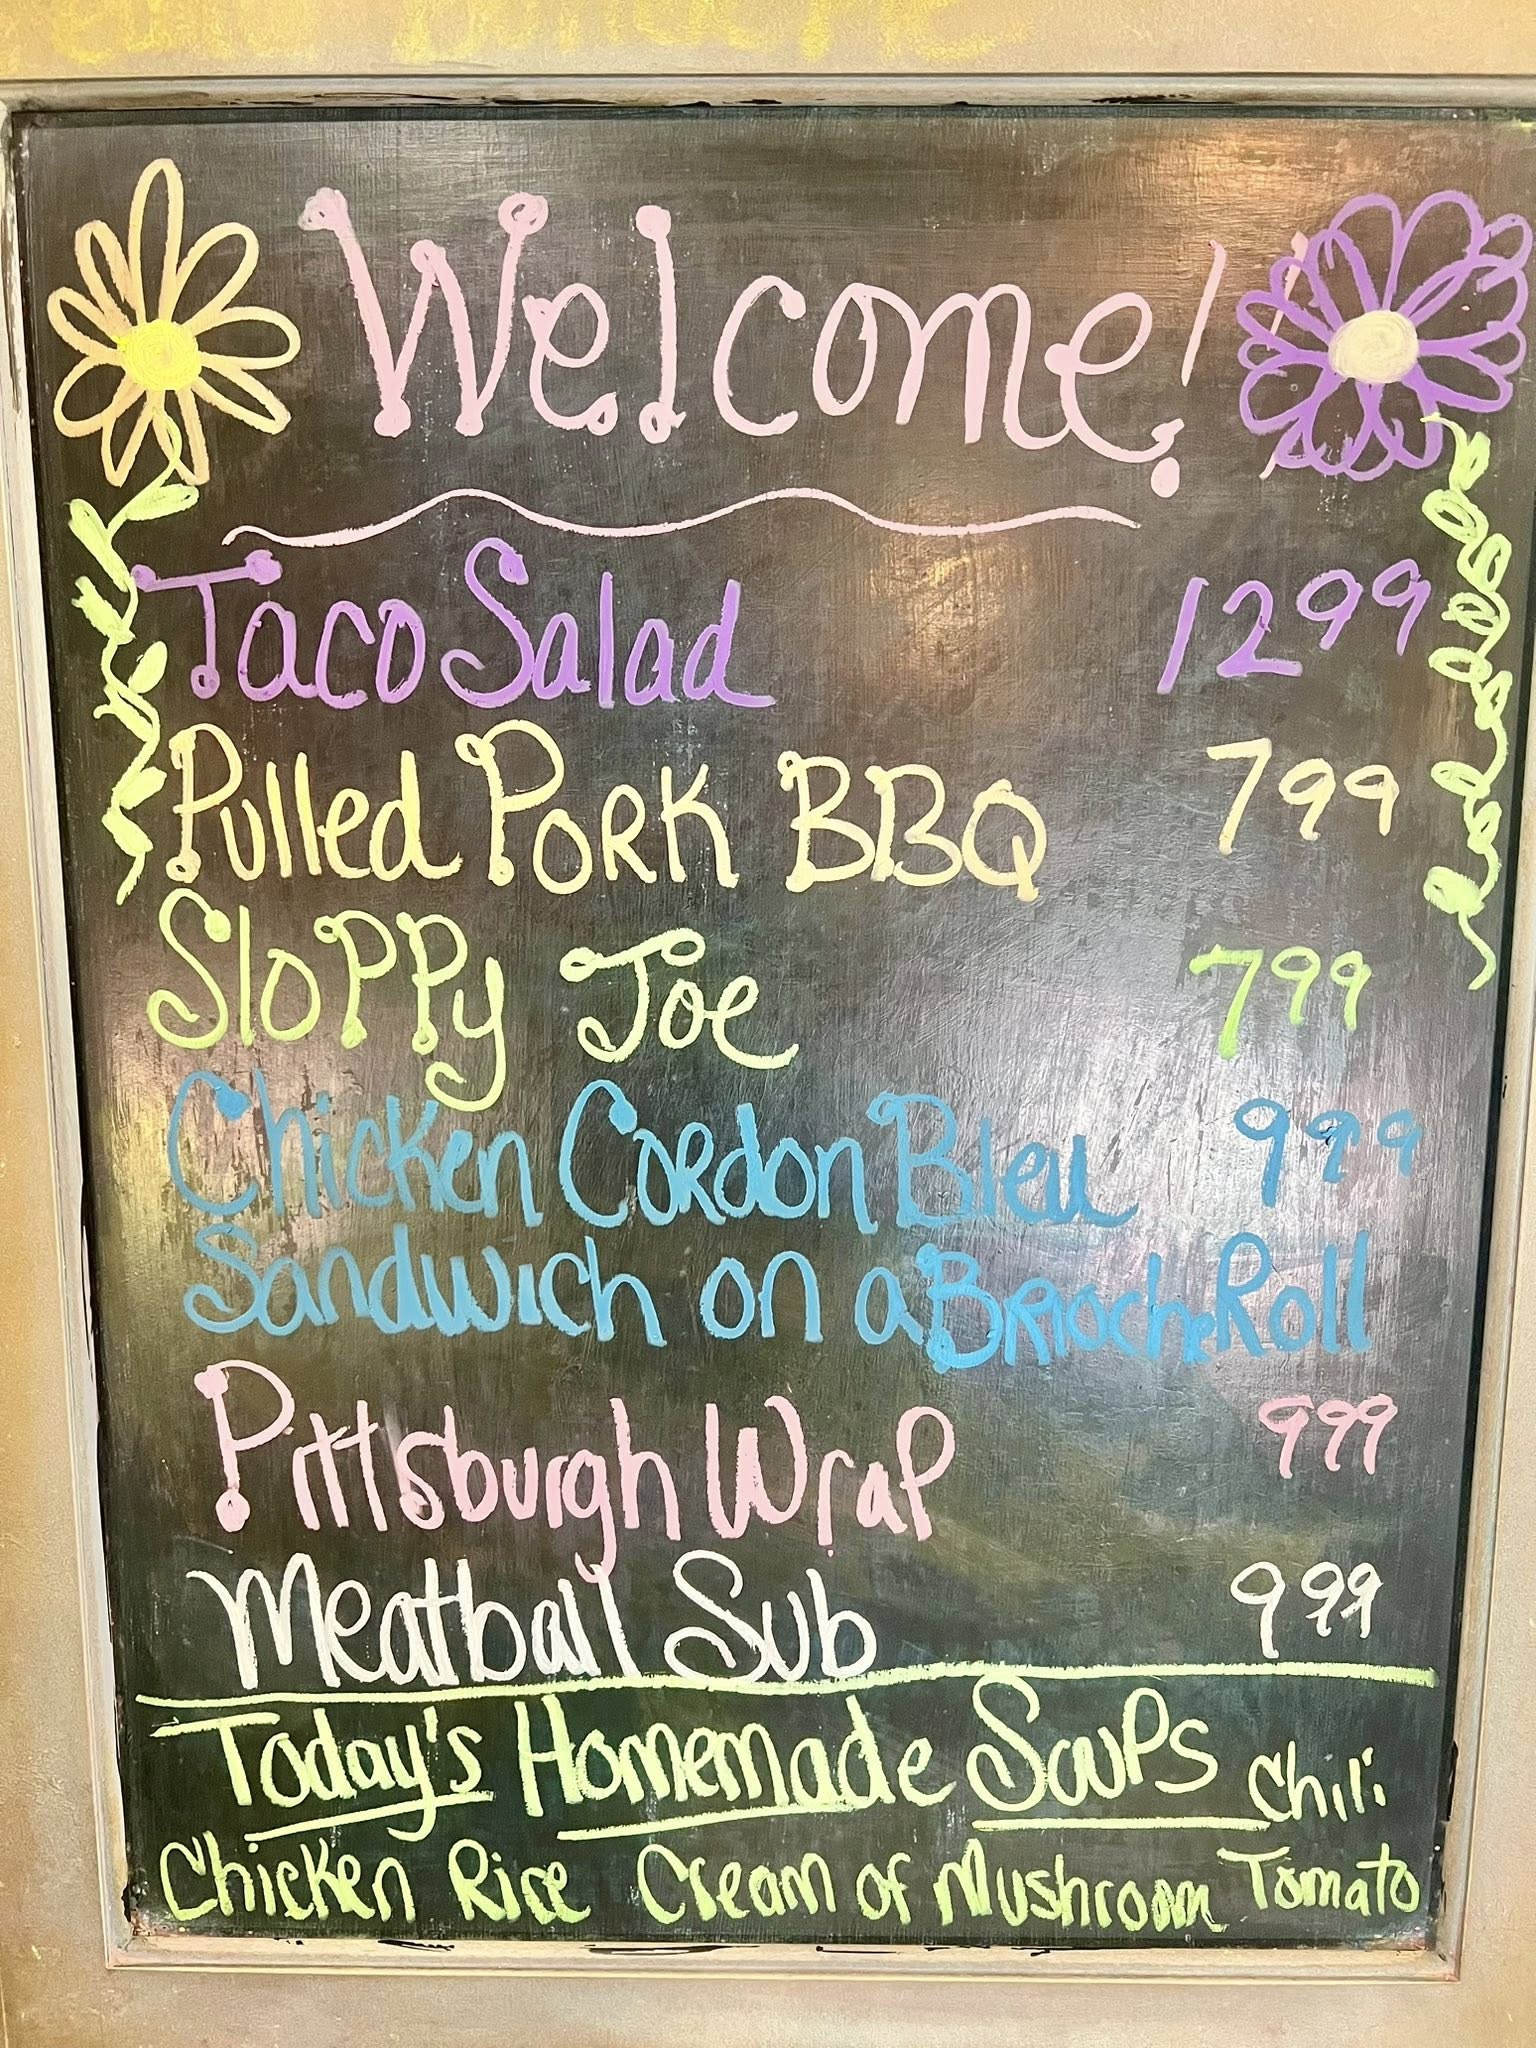 Welcome!
Taco Salad 1299
Pulled Pork BBQ 799
Sloppy Joe 799
Chicken Cordon Bleu 999
Sandwich on a Brioche Roll
Pittsburgh Wrap 999
Meatball Sub 999
Today's Homemade Soups Chili
Chicken Rice Cream of Mushroom Tomato